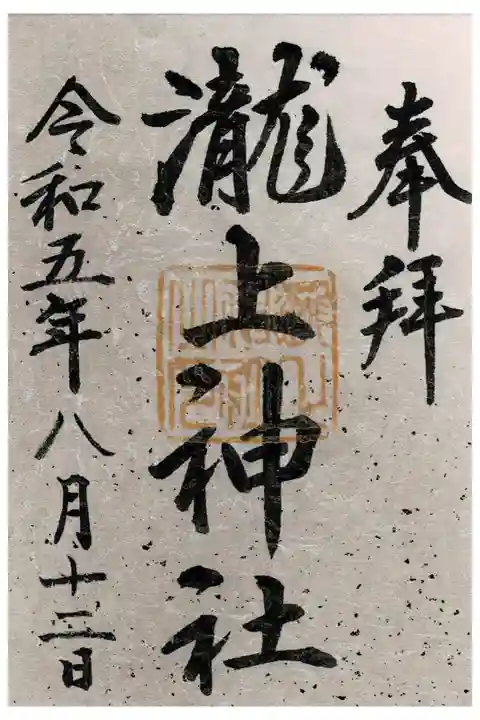 奉拜
瀧上神社
令和五年八月十二日